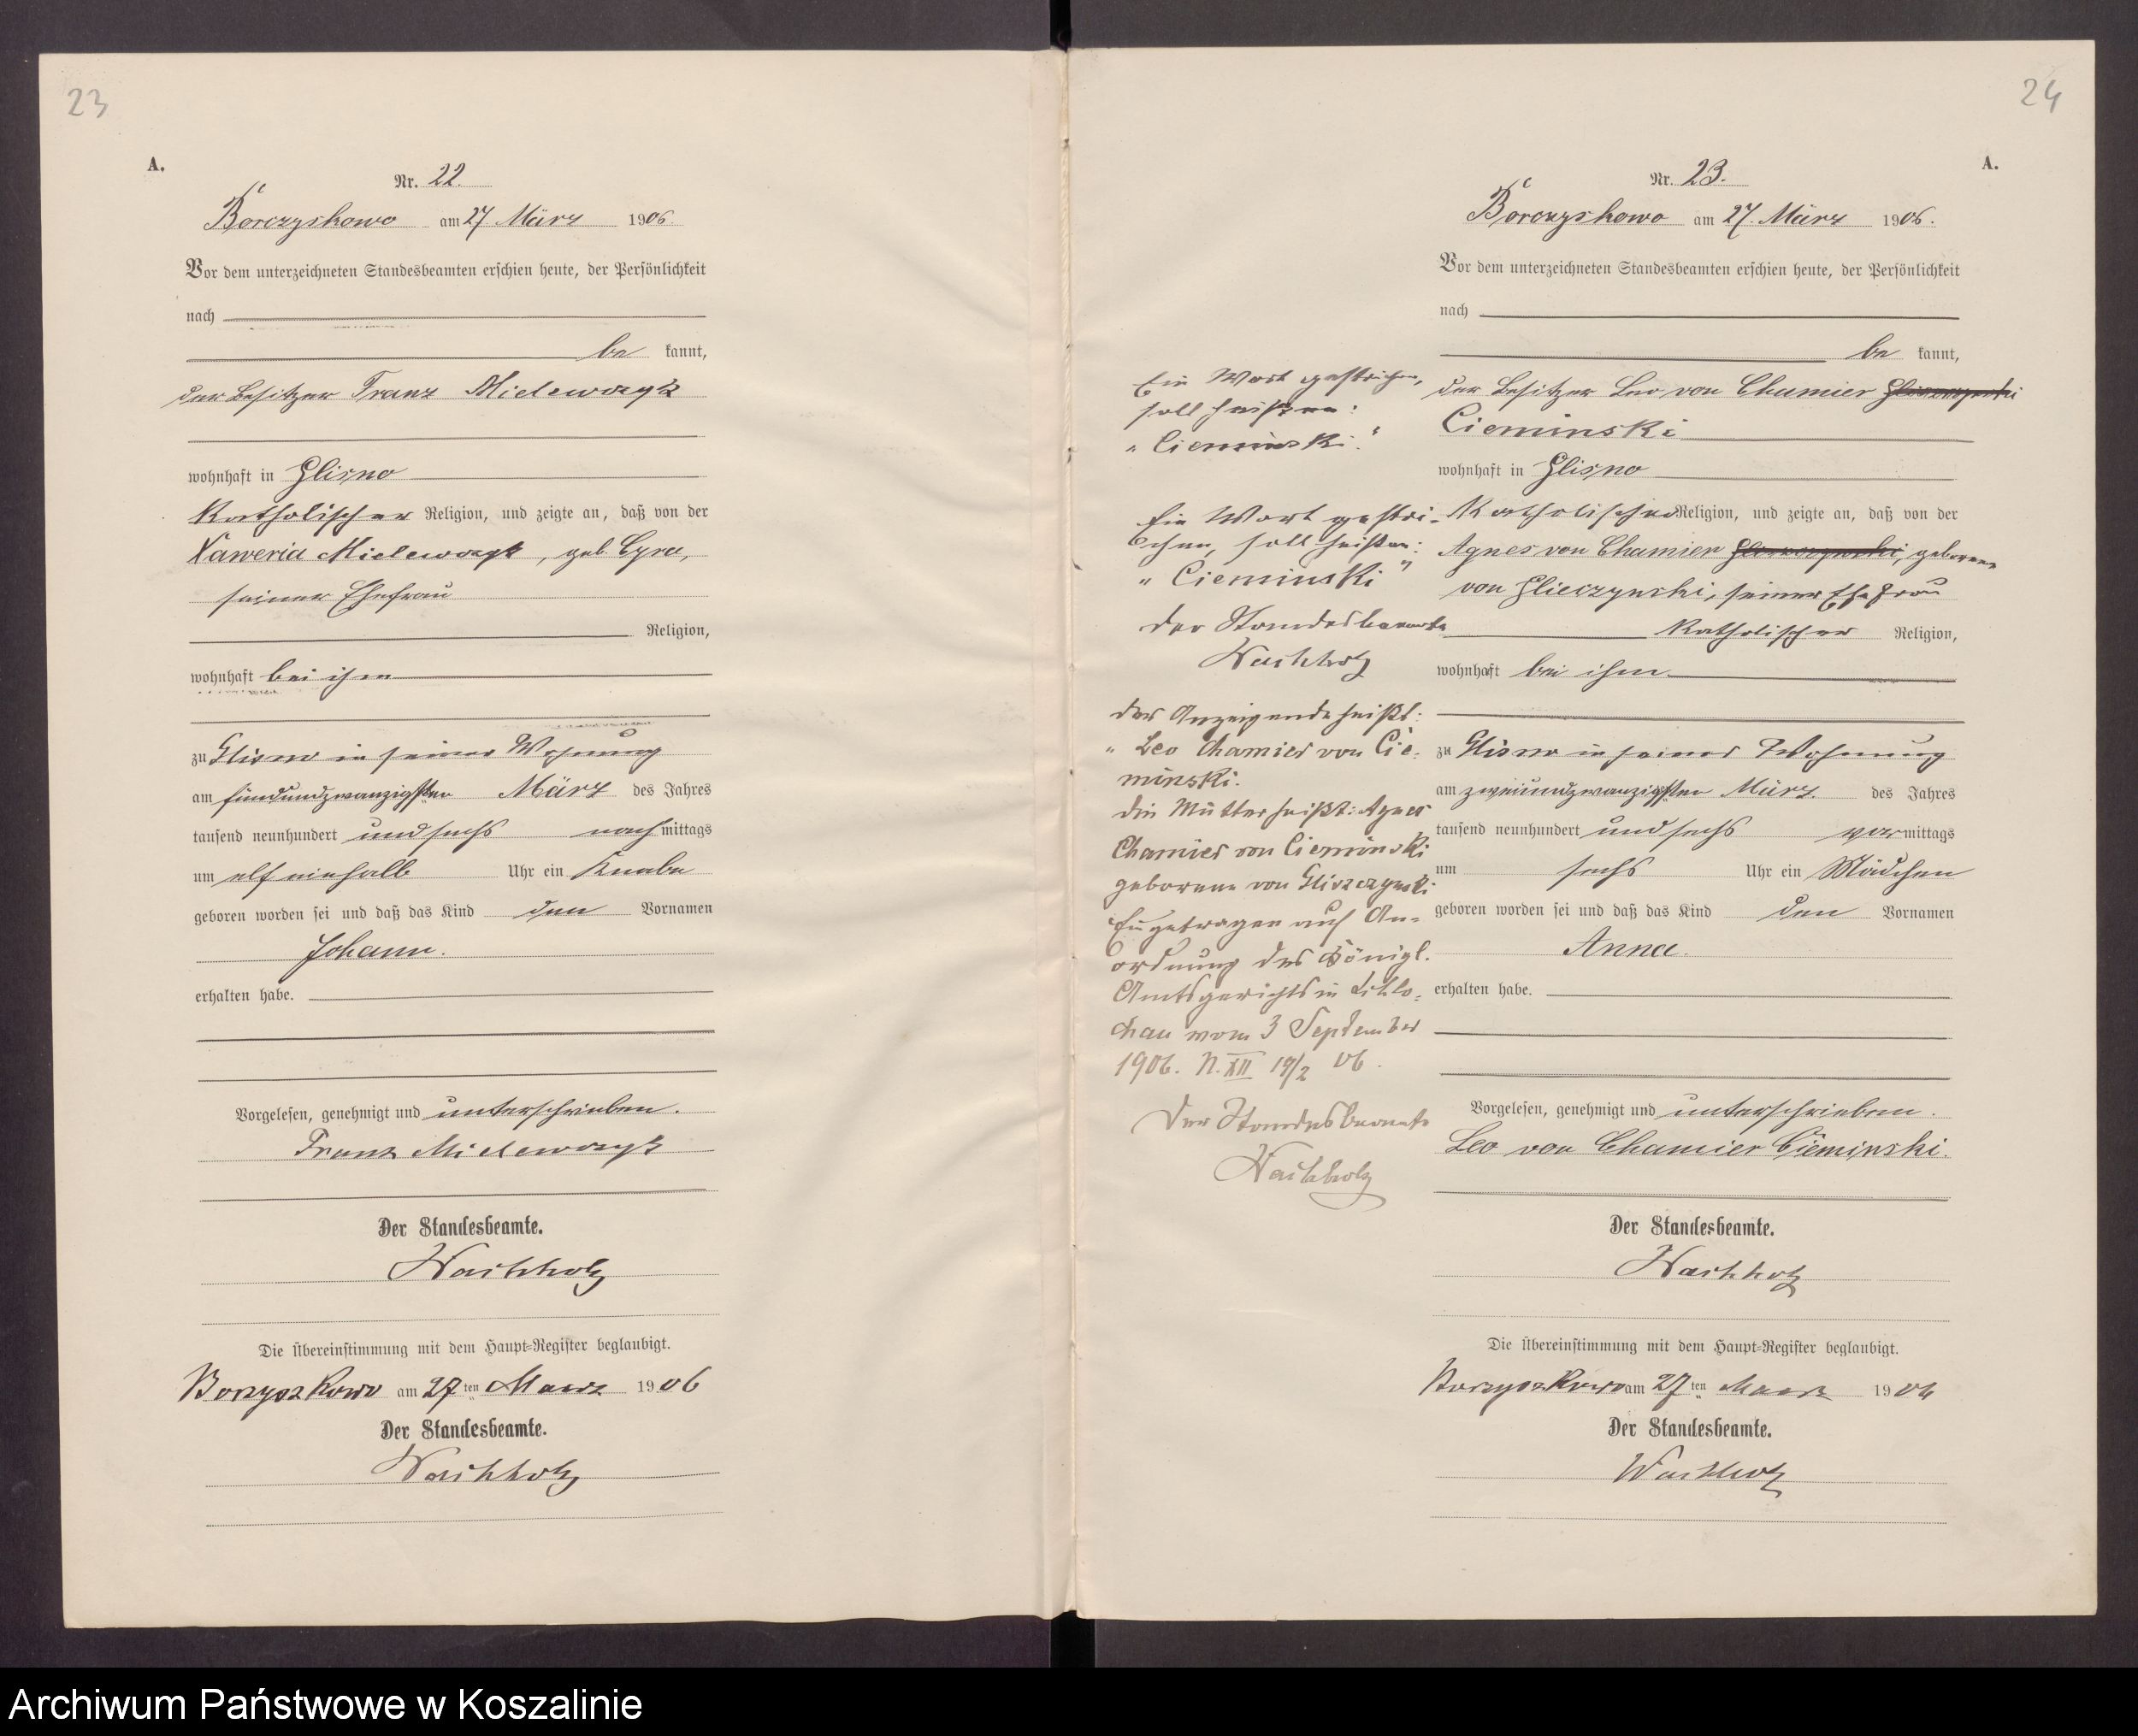 23
A.
Nr. 22.
Borczyskowo am 27 März 1906.
Vor dem unterzeichneten Standesbeamten erschien heute, der Persönlichkeit
nach
be kannt,
der Besitzer Franz Mielewczyk
wohnhaft in Glisno
Katholischer Religion, und zeigte an, daß von der
Xaweria Mielewczyk, geb. Cyra,
seiner Ehefrau
Religion,
wohnhaft bei ihm
zu Glisno in seiner Wohnung
am fünfundzwanzigsten März des Jahres
tausend neunhundert und sechs nachmittags
um elf einhalb Uhr ein Knabe
geboren worden sei und daß das Kind den Vornamen
Johann.
erhalten habe.
Vorgelesen, genehmigt und unterschrieben.
Franz Mielewczyk
Der Standesbeamte.
Wachholz
Die Übereinstimmung mit dem Haupt-Register beglaubigt.
Borzyszkowo am 27ten Maerz 1906
Der Standesbeamte.
Wachholz
24
A.
Nr. 23.
Borczyskowo am 27. März 1906.
Vor dem unterzeichneten Standesbeamten erschien heute, der Persönlichkeit
nach
be kannt,
der Besitzer Leo von Chamier
Cieminski
wohnhaft in Glisno
Katholischer Religion, und zeigte an, daß von der
Agnes von Chamier, geborene
von Glieczynski, seiner Ehefrau
Katholischer Religion,
wohnhaft bei ihm
zu Glisno in seiner Wohnung
am zweiundzwanzigsten März. des Jahres
tausend neunhundert und sechs vormittags
um sechs Uhr ein Mädchen
geboren worden sei und daß das Kind den Vornamen
Anna.
erhalten habe.
Vorgelesen, genehmigt und unterschrieben.
Leo von Chamier Cieminski.
Der Standesbeamte.
Wachholz
Die Übereinstimmung mit dem Haupt-Register beglaubigt.
Borzyszkowo am 27ten Maerz 1906
Der Standesbeamte.
Wachholz
Ein Wort gestrichen,
soll heißen:
"Cieminski."
Ein Wort gestri-
chen, soll heißen:
"Cieminski"
Der Standesbeamte
Wachholz
Der Anzeigende heißt:
"Leo Chamier von Cie-
minski.
die Mutter heißt: Agnes
Chamier von Cieminski
geborene von Gliszczynski
Eingetragen auf An-
ordnung des Königl.
Amtsgerichts in Schlo-
chau vom 3 September
1906. N. XII 19/2 06.
Der Standesbeamte
Wachholz
Archiwum Państwowe w Koszalinie